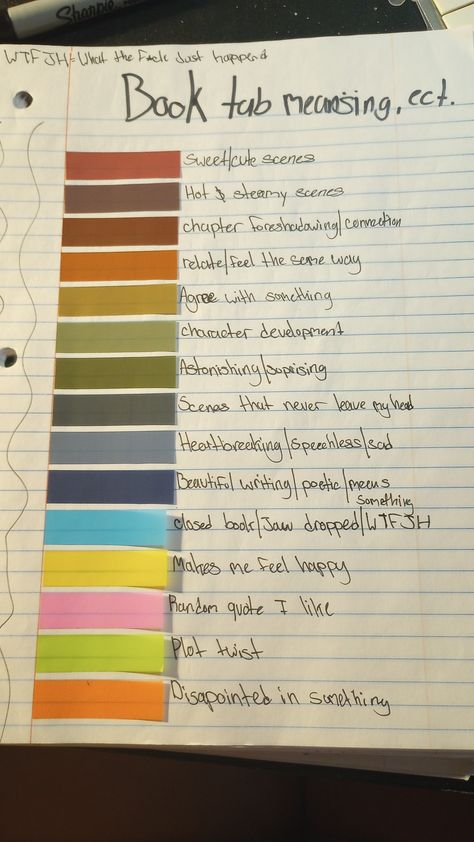 Sharpie
WTFJH = What the Fuck Just happend
Book tab meansing, ect.
Sweet/cute scenes
Hot & steamy scenes
chapter foreshadowing/connection
relate/feel the same way
Agree with something
character development
Astonishing/suprising
Scenes that never leave my head
Heartbreeking/speechless/sad
Beautiful writing/poetic/meens
something
closed book/Jaw dropped/WTFJH
Makes me feel happy
Random quote I like
Plot twist
Disapointed in something